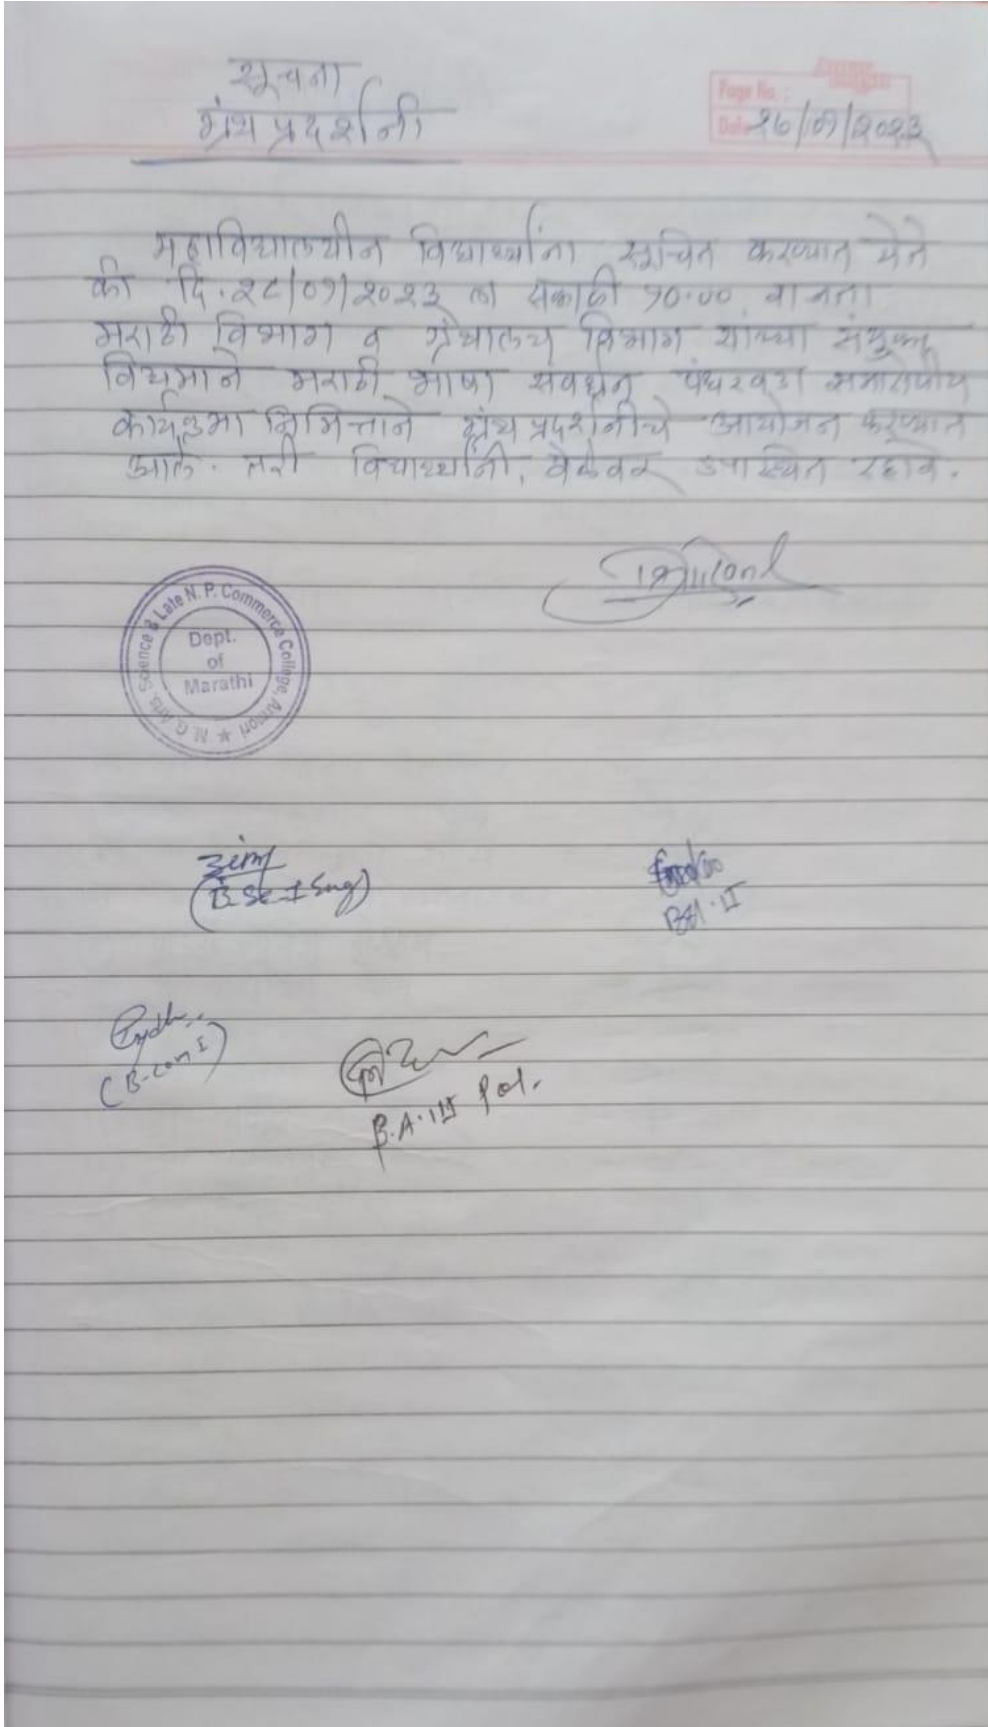 सूचना
ग्रंथ प्रदर्शनी
Page No.:
Date २७/०१/२०२३
महाविद्यालयीन विद्यार्थ्यांना सूचित करण्यात येते
की दि. २८/०१/२०२३ ला सकाळी १०:०० वाजता
मराठी विभाग व ग्रंथालय विभाग यांच्या संयुक्त
विद्यमाने मराठी भाषा संवर्धन पंधरवडा समारोपीय
कार्यक्रमा निमित्ताने ग्रंथ प्रदर्शनीचे आयोजन करण्यात
आले. तरी विद्यार्थ्यांनी, वेळेवर उपस्थित रहावे.
M. G. Arts, Science & Late N. P. Commerce College, Armori
Dept.
of
Marathi
(B.Sc-I Eng)
BA.II
(B-com I)
B.A.III Pol.